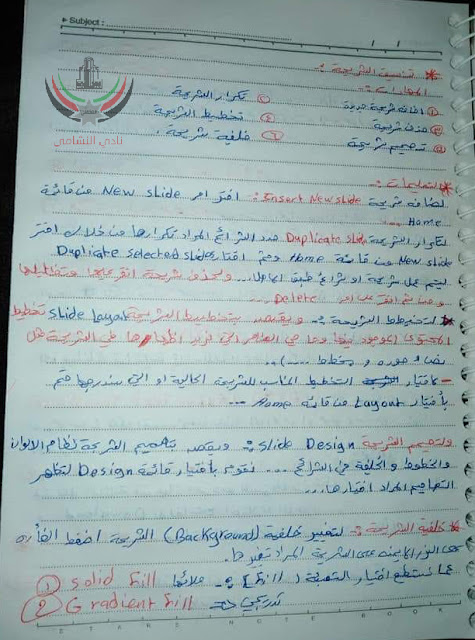 Subject :
* تنسيق الشريحة :
المهارات :-
① اضافة شريحة جديدة ② تكرار الشريحة
③ حذف شريحة ④ تخطيط الشريحة
⑤ تصميم شريحة ⑥ خلفية شريحة .
نادي النشامى
* التعليمات :-
لإضافة شريحة Insert New slide : اختر امر New slide من قائمة
Home ...
لتكرار الشريحة Duplicate slide حدد الشرائح المراد تكرارها من خلال اختر
New slide من قائمة Home ومن ثم اختار Duplicate selected slides
ليتم عمل شريحة او شرائح طبق الاصل .. ولحذف شريحة انقر عليها وتظليلها
ومن ثم انقر على امر Delete
* لتخطيط الشريحة :- ويقصد بتخطيط الشريحة slide layout تخطيط
المحتوى الموجود فيها وما هي العناصر التي نريد اظهارها في الشريحة هل
نص او صورة و مخطط ....)..
- لاختيار التخطيط المناسب للشريحة الحالية او التي سندرجها قم
بأختيار Layout من قائمة Home ...
ولتصميم الشريحة Slide Design : ويقصد بتصميم الشريحة نظام الالوان
والخطوط والخلفة في الشرائح ... نقوم بأختيار قائمة Design لتظهر
التصاميم المراد اختيارها ...
* خلفية الشريحة :- لتغيير خلفية (Background) الشريحة اضغط الفأرة
على الزر الايمن على الشريحة المراد تغييرها .
كما نستطيع اختيار التعبئة (fill) :-
① solid fill
② Gradient fill تدريجي